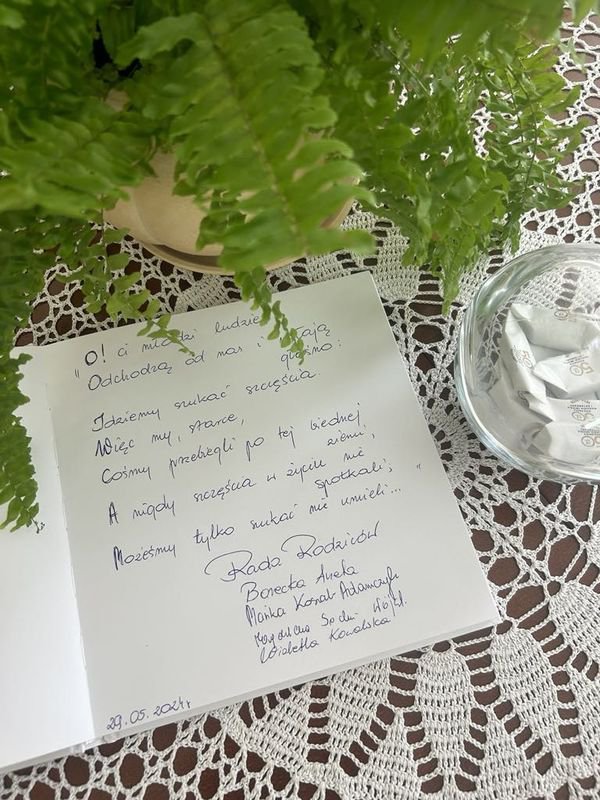 "O! ci młodzi ludzie
Odchodzą od nas i głośno:
Idziemy szukać szczęścia.
Więc my, starce,
Cośmy przebiegli po tej biednej
ziemi,
A nigdy szczęścia w życiu nie
spotkali,
Możeśmy tylko szukać nie umieli... "
Rada Rodziców
Borecka Aneta
Kosnal-Adamczyk
Wioletta Kowalska
29.05.2024r
50